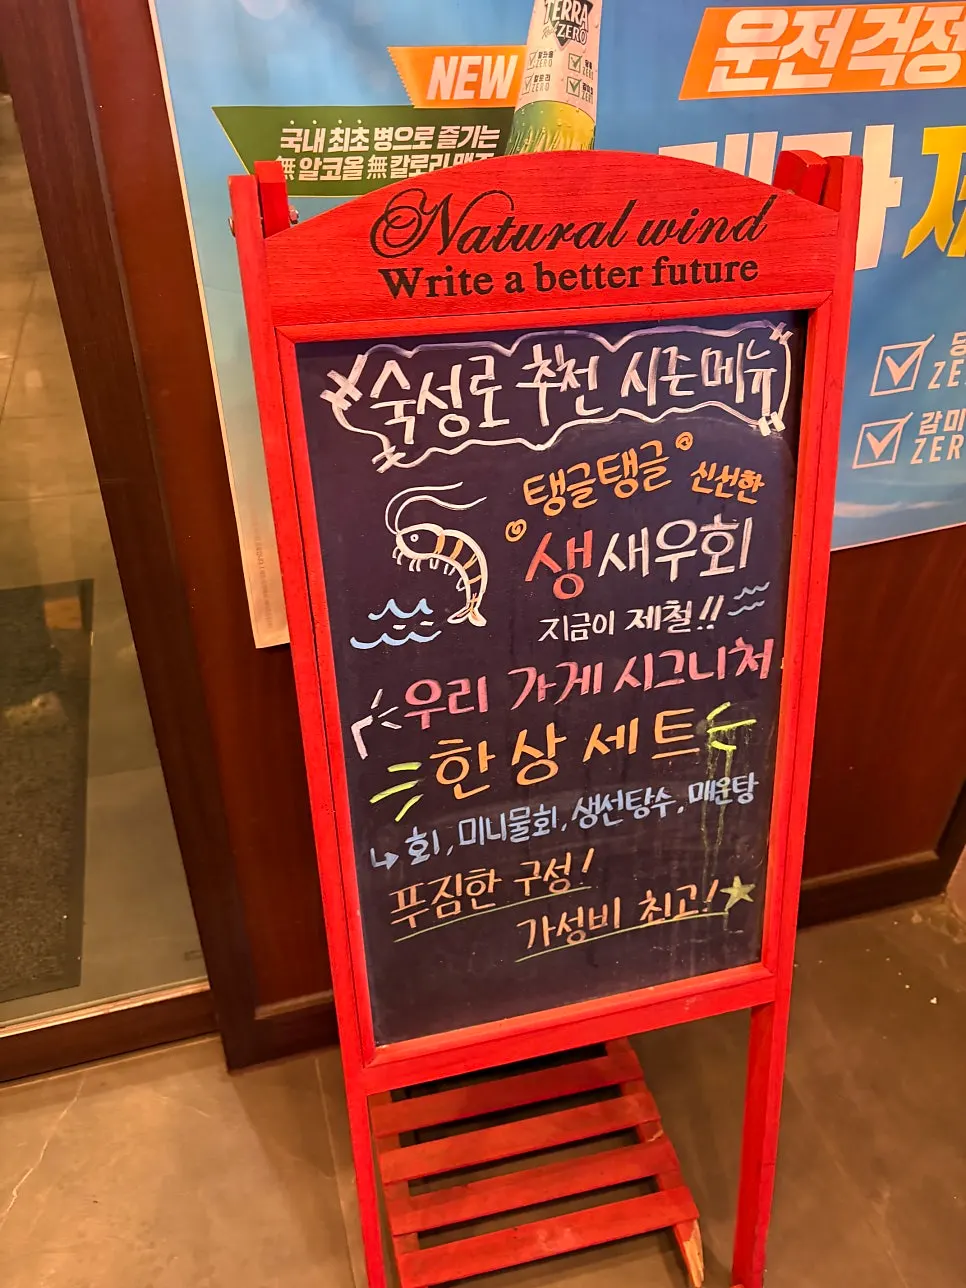 TERRA
ZERO
NEW
국내 최초 병으로 즐기는
無 알코올 無 칼로리
운전 걱정
ZERO
Natural wind
Write a better future
숙성로 추천 시즌메뉴
탱글탱글 신선한
생새우회
지금이 제철!!
우리 가게 시그니처
한상세트
회, 미니물회, 생선탕수, 매운탕
푸짐한 구성!
가성비 최고!